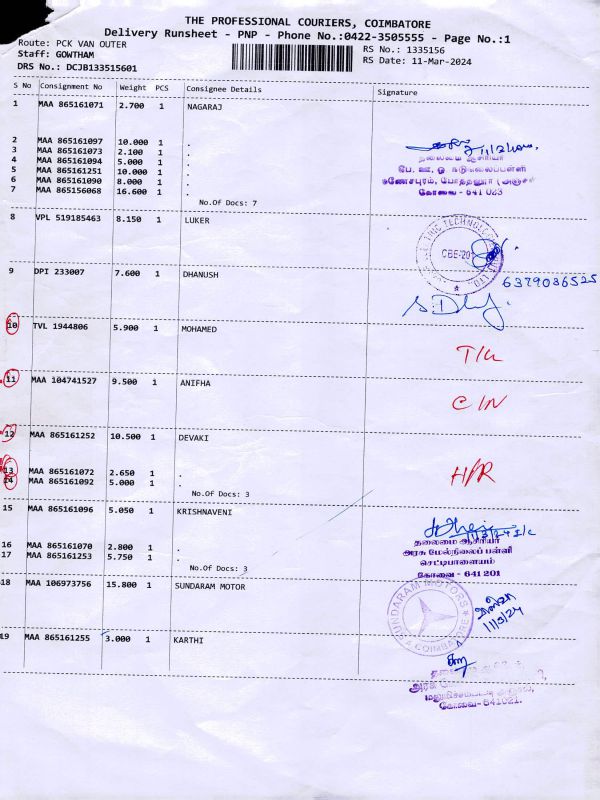 THE PROFESSIONAL COURIERS, COIMBATORE
Delivery Runsheet - PNP - Phone No.:0422-3505555 - Page No.:1
Route: PCK VAN OUTER
RS No.: 1335156
Staff: GOWTHAM
RS Date: 11-Mar-2024
DRS No.: DCJB133515601
S No Consignment No Weight PCS Consignee Details Signature
1 MAA 865161071 2.700 1 NAGARAJ
2 MAA 865161097 10.000 1 .
3 MAA 865161073 2.100 1 .
4 MAA 865161094 5.000 1 .
5 MAA 865161251 10.000 1 .
6 MAA 865161090 8.000 1 .
7 MAA 865156068 16.600 1 .
தலைமை ஆசிரியர்
கோவை - 641 023
No.Of Docs: 7
8 VPL 519185463 8.150 1 LUKER
CBE-20
9 DPI 233007 7.600 1 DHANUSH
6379036525
10 TVL 1944806 5.900 1 MOHAMED
T/L
11 MAA 104741527 9.500 1 ANIFHA
C/N
12 MAA 865161252 10.500 1 DEVAKI
13 MAA 865161072 2.650 1 .
14 MAA 865161092 5.000 1 .
H/R
No.Of Docs: 3
15 MAA 865161096 5.050 1 KRISHNAVENI
16 MAA 865161070 2.800 1 .
17 MAA 865161253 5.750 1 .
தலைமை ஆசிரியர்
அரசு மேல்நிலைப் பள்ளி
செட்டிபாளையம்
கோவை - 641 201
No.Of Docs: 3
18 MAA 106973756 15.800 1 SUNDARAM MOTOR
SUNDARAM MOTORS
COIMBATORE
11/3/24
19 MAA 865161255 3.000 1 KARTHI
கோவை-641021.